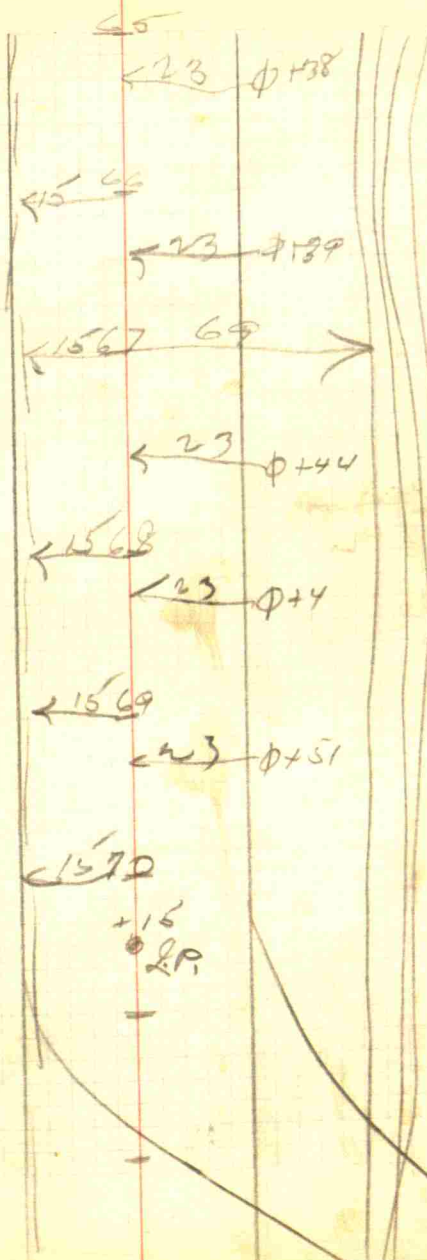 65
23 φ+38
15 66
23 φ+39
15 67 69
23 φ+44
15 68
23 φ+4
15 69
23 φ+51
15 70
+15